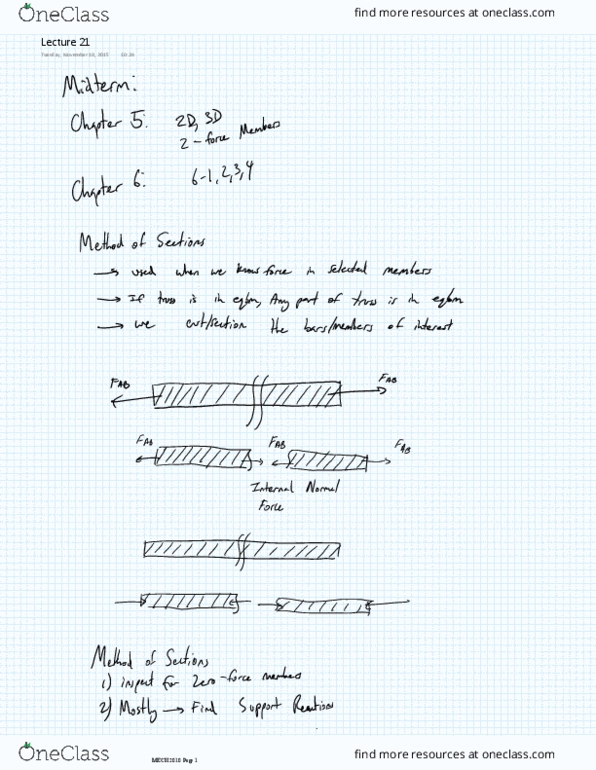 OneClass
find more resources at oneclass.com
Lecture 21
Tuesday, November 10, 2015
Midterm:
Chapter 5: 2D, 3D
2-force Members
Chapter 6: 6-1,2,3,4
Method of Sections
→ used when we know force in selected members
→ If truss is in eqbm, Any part of truss is in eqbm
→ we cut/section the bars/members of interest
FAB FAB
FAB FAB FAB
Internal Normal
Force
Method of Sections
1) inspect for Zero-force members
2) Mostly → Find Support Reactions
OneClass
MECH2110 Page 1
find more resources at oneclass.com